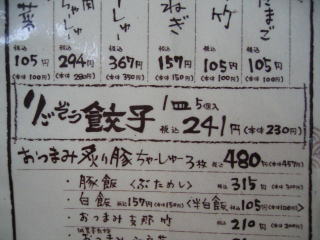 たまご
竹
ねぎ
税込 税込 税込 税込 税込 税込
105円 294円 367円 157円 105円 105円
(本体100円) (本体280円) (本体350円) (本体150円) (本体100円) (本体100円)
りごぞう餃子 1皿5個入 税込241円(本体230円)
おつまみ炙り豚ちゃーしゅー3枚 税込480円(本体457円)
・豚飯<ぶためし> 税込315円(本体300円)
・白飯 税込157円(本体150円)<半白飯 税込105円(本体100円)>
・おつまみ支那竹 税込210円(本体200円)